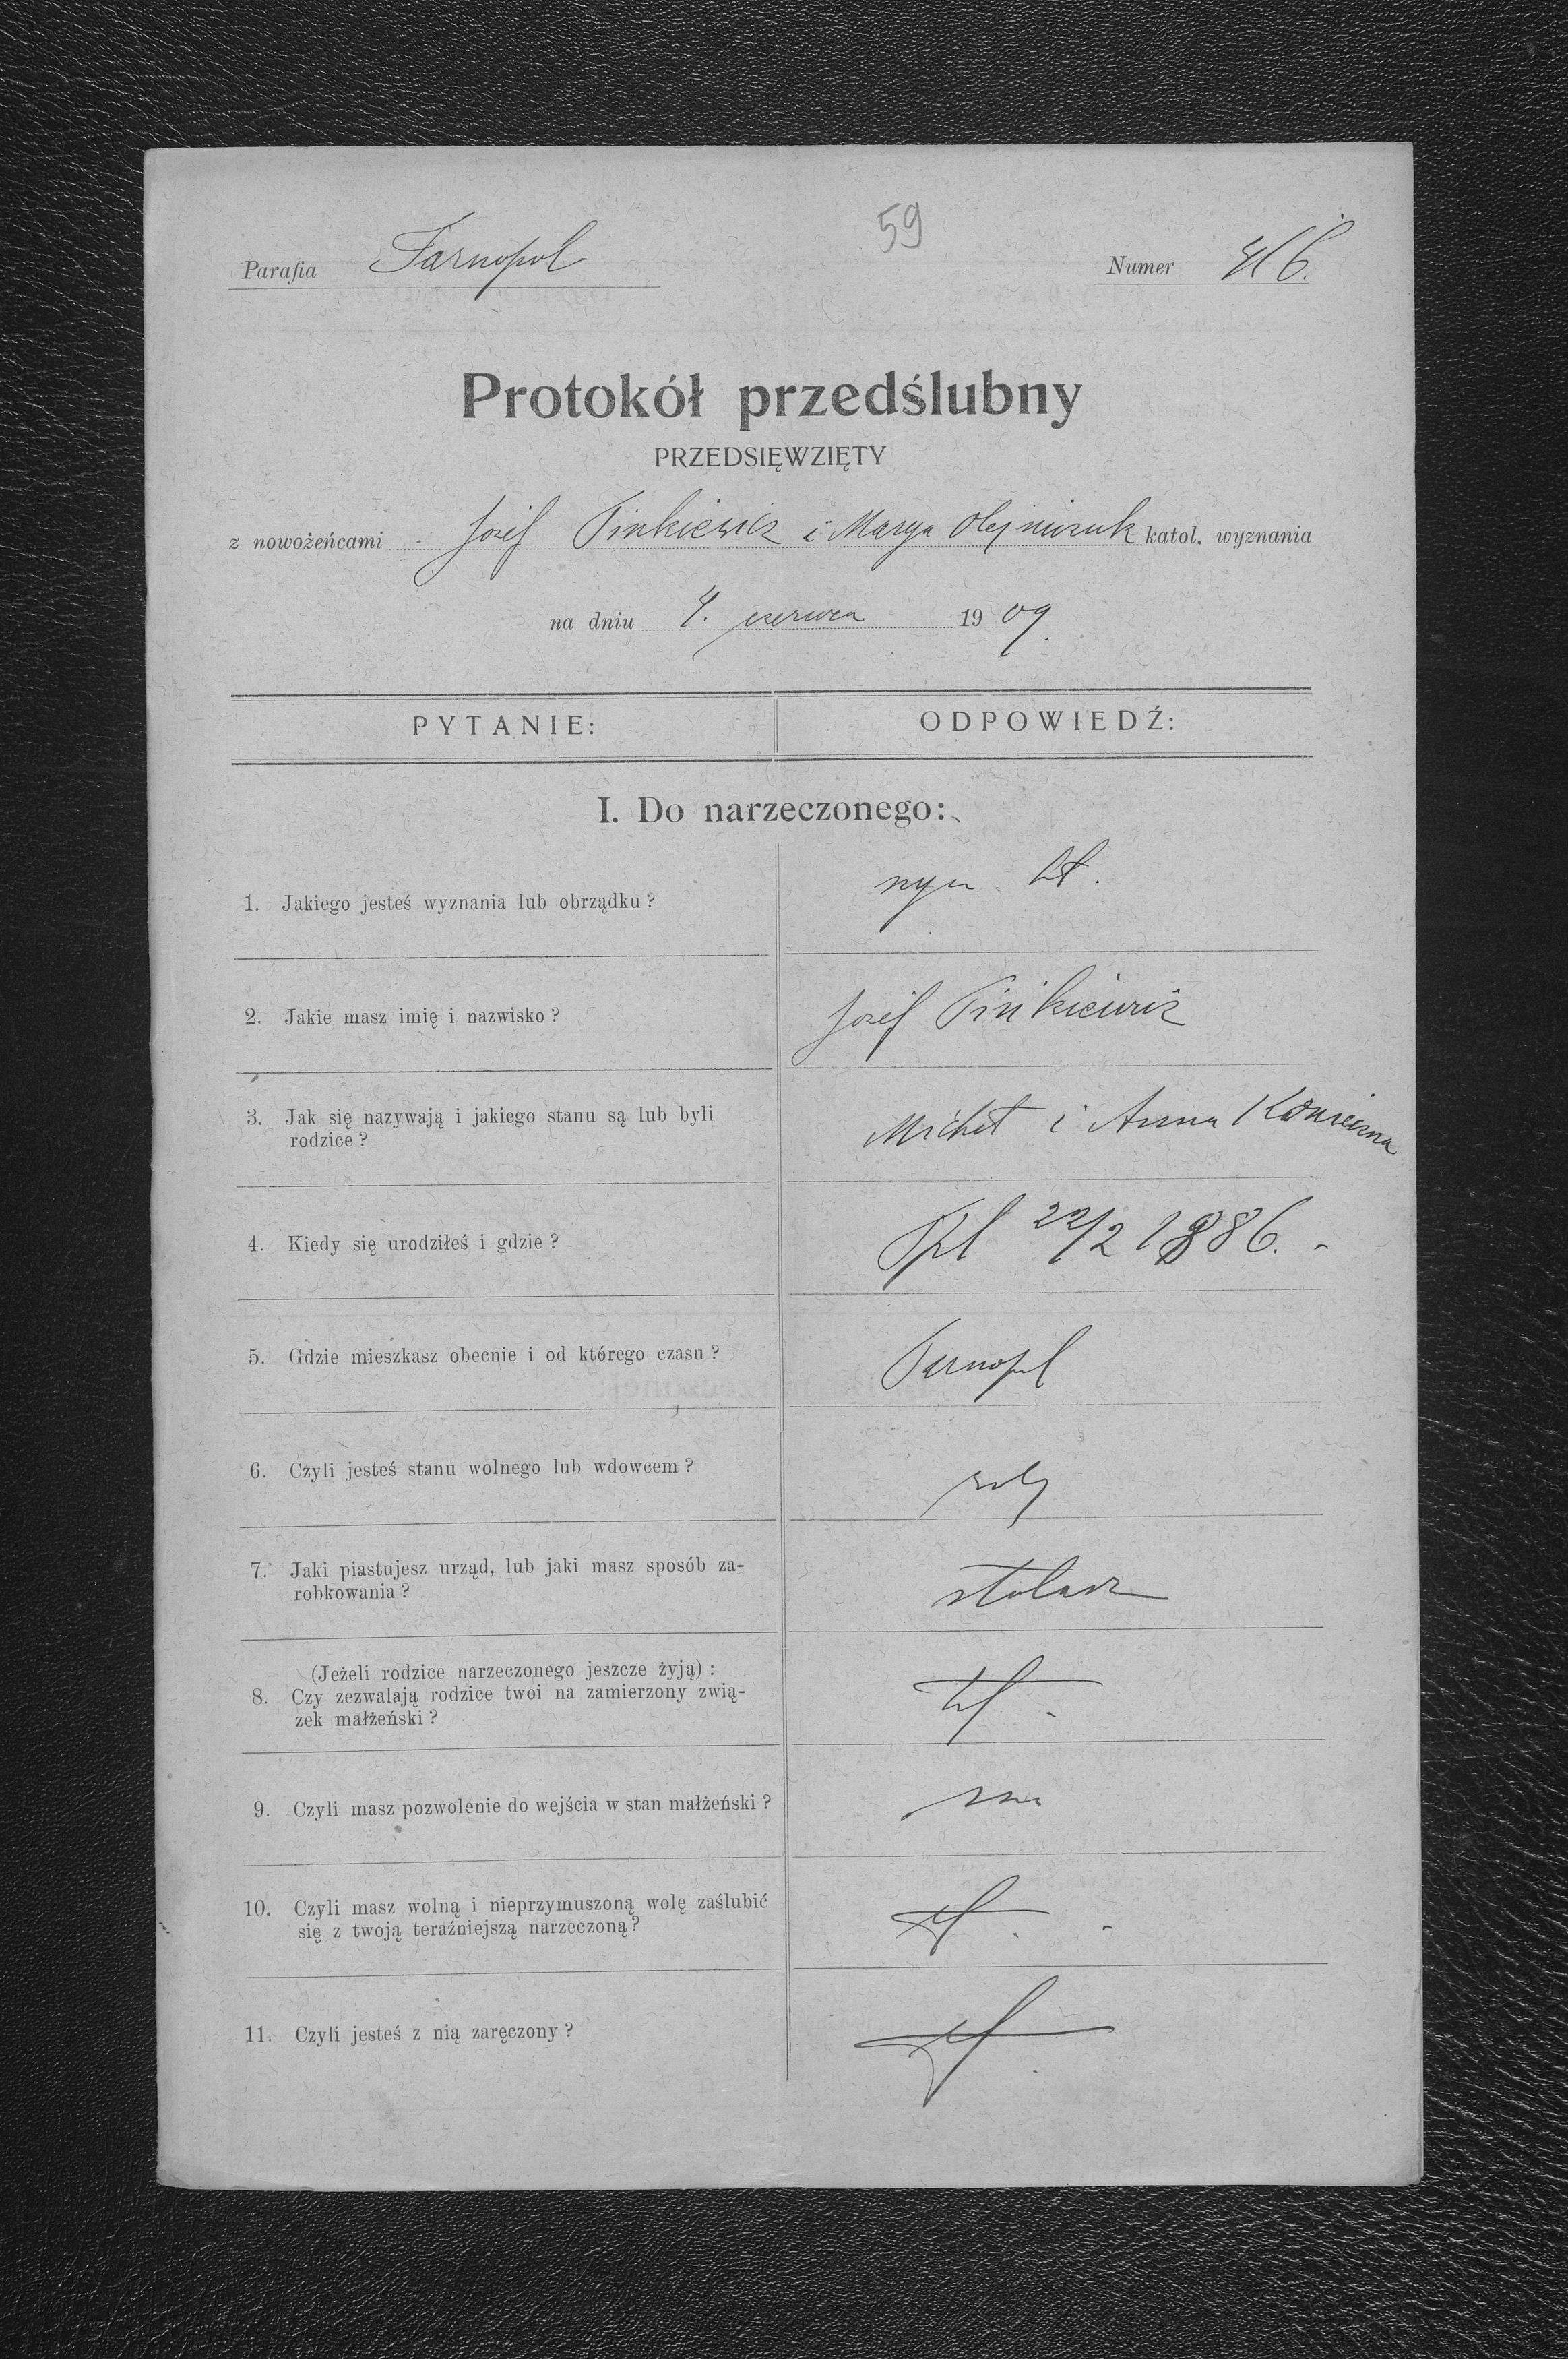 59
Parafia Tarnopol Numer 46.
Protokół przedślubny
PRZEDSIĘWZIĘTY
z nowożeńcami Józef Pinkiewicz i Marya Olejniczuk katol. wyznania
na dniu 4. czerwca 1909.
PYTANIE: ODPOWIEDŹ:
I. Do narzeczonego:
1. Jakiego jesteś wyznania lub obrządku?
rzym.
2. Jakie masz imię i nazwisko?
Józef Pinkiewicz
3. Jak się nazywają i jakiego stanu są lub byli
rodzice?
Michał i Anna Konieczna
4. Kiedy się urodziłeś i gdzie?
22/2 1886.
5. Gdzie mieszkasz obecnie i od którego czasu?
Tarnopol
6. Czyli jesteś stanu wolnego lub wdowcem?
7. Jaki piastujesz urząd, lub jaki masz sposób za-
robkowania?
stolarz
(Jeżeli rodzice narzeczonego jeszcze żyją):
8. Czy zezwalają rodzice twoi na zamierzony zwią-
zek małżeński?
9. Czyli masz pozwolenie do wejścia w stan małżeński?
10. Czyli masz wolną i nieprzymuszoną wolę zaślubić
się z twoją teraźniejszą narzeczoną?
11. Czyli jesteś z nią zaręczony?